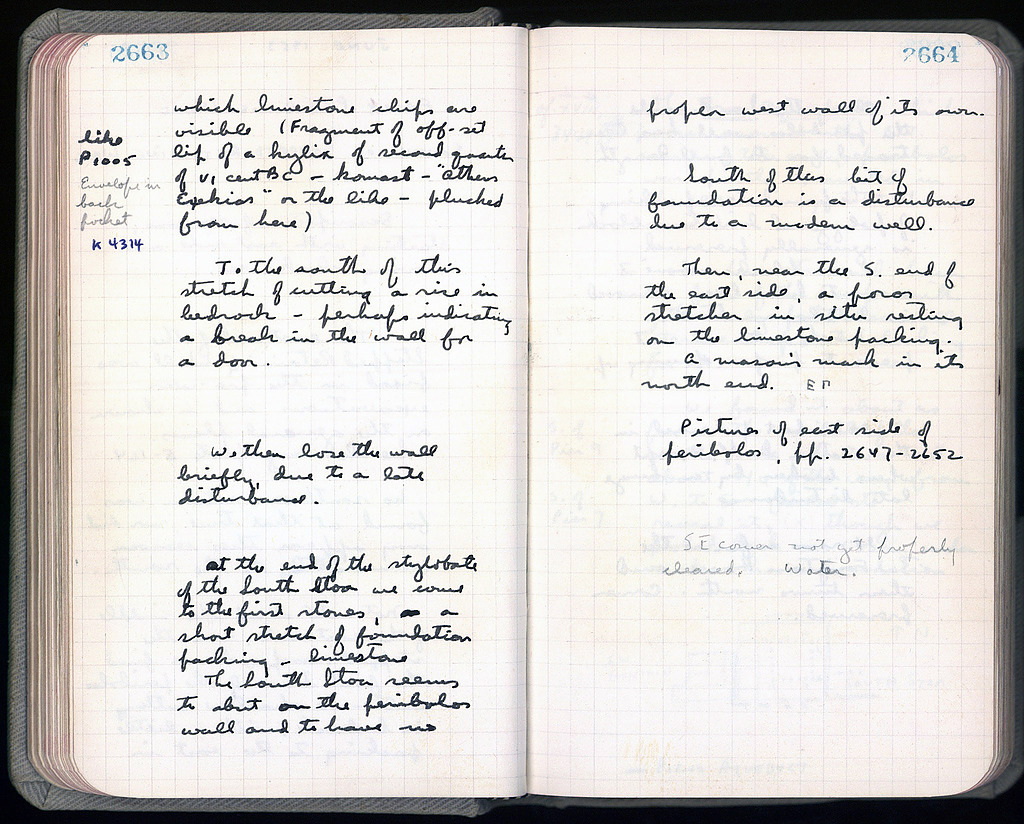 2663
which limestone chips are
visible (Fragment of off-set
lip of a kylix of second quarter
of VI cent BC – komast – "Athens
Exekias" or the like – plucked
from here)
like
P1005
Envelope in
back
pocket
K 4314
To the south of this
stretch of cutting a rise in
bedrock – perhaps indicating
a break in the wall for
a door.
We then lose the wall
briefly, due to a late
disturbance.
At the end of the stylobate
of the South Stoa we come
to the first stones, a
short stretch of foundation
packing – limestone
The South Stoa seems
to abut on the peribolos
wall and to have no
2664
proper west wall of its own.
South of this bit of
foundation is a disturbance
due to a modern well.
Then, near the S. end of
the east side, a poros
stretcher in situ resting
on the limestone packing.
A mason's mark in its
north end. ΕΠ
Pictures of east side of
peribolos, pp. 2647–2652
SE corner not yet properly
cleared. Water.